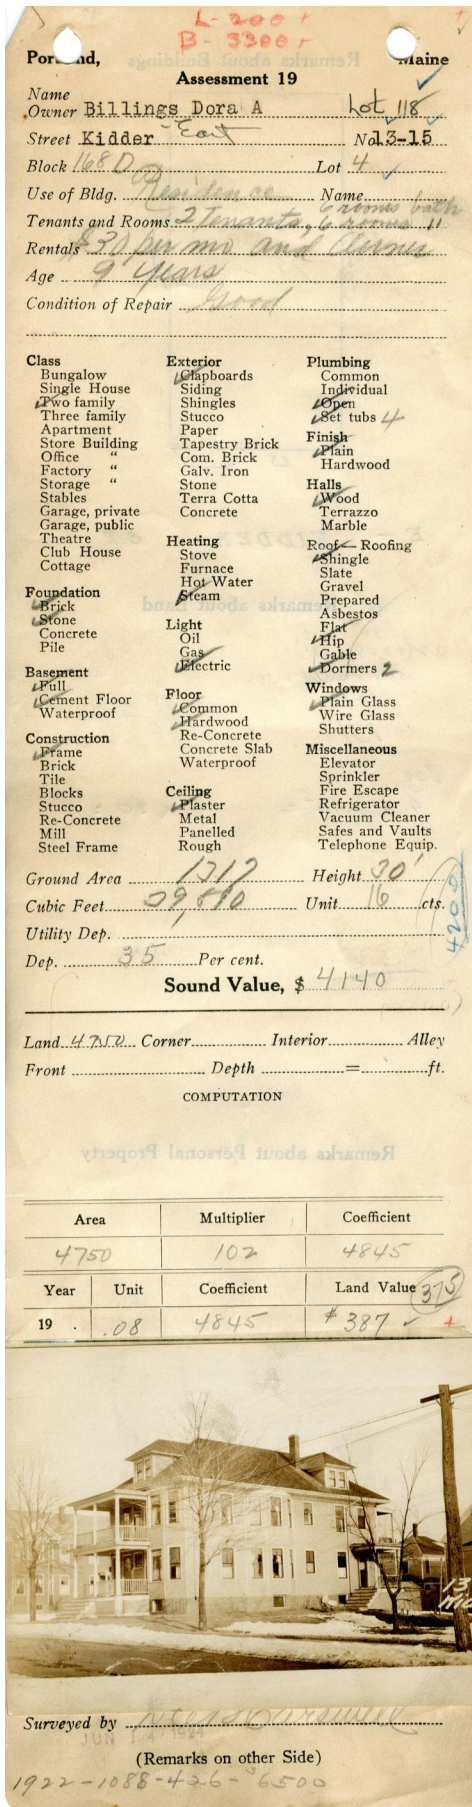 L-200+
B-3300+
Portland, Maine
Assessment 19
Name
Owner Billings Dora A Lot 118
Street Kidder - East No 13-15
Block 168 D Lot 4
Use of Bldg. Residence Name
6 rooms bath
Tenants and Rooms 2 Tenants, 6 rooms "
Rentals $30 per mo and Owner
Age 9 years
Condition of Repair Good
Class
Bungalow
Single House
Two family
Three family
Apartment
Store Building
Office "
Factory "
Storage "
Stables
Garage, private
Garage, public
Theatre
Club House
Cottage
Foundation
Brick
Stone
Concrete
Pile
Basement
Full
Cement Floor
Waterproof
Construction
Frame
Brick
Tile
Blocks
Stucco
Re-Concrete
Mill
Steel Frame
Exterior
Clapboards
Siding
Shingles
Stucco
Paper
Tapestry Brick
Com. Brick
Galv. Iron
Stone
Terra Cotta
Concrete
Heating
Stove
Furnace
Hot Water
Steam
Light
Oil
Gas
Electric
Floor
Common
Hardwood
Re-Concrete
Concrete Slab
Waterproof
Ceiling
Plaster
Metal
Panelled
Rough
Plumbing
Common
Individual
Open
Set tubs 4
Finish
Plain
Hardwood
Halls
Wood
Terrazzo
Marble
Roof — Roofing
Shingle
Slate
Gravel
Prepared
Asbestos
Flat
Hip
Gable
Dormers 2
Windows
Plain Glass
Wire Glass
Shutters
Miscellaneous
Elevator
Sprinkler
Fire Escape
Refrigerator
Vacuum Cleaner
Safes and Vaults
Telephone Equip.
Ground Area 1317 Height 30'
Cubic Feet Unit 16 cts.
4200
Utility Dep.
Dep. 35 Per cent.
Sound Value, $ 4140
Land 4750 Corner Interior Alley
Front Depth = ft.
COMPUTATION
Remarks about Personal Property
Area Multiplier Coefficient
4750 102 4845
Year Unit Coefficient Land Value 375
19 . .08 4845 $ 387
13
Surveyed by
JUN 14 1924
(Remarks on other Side)
1922-1088-426-$6500